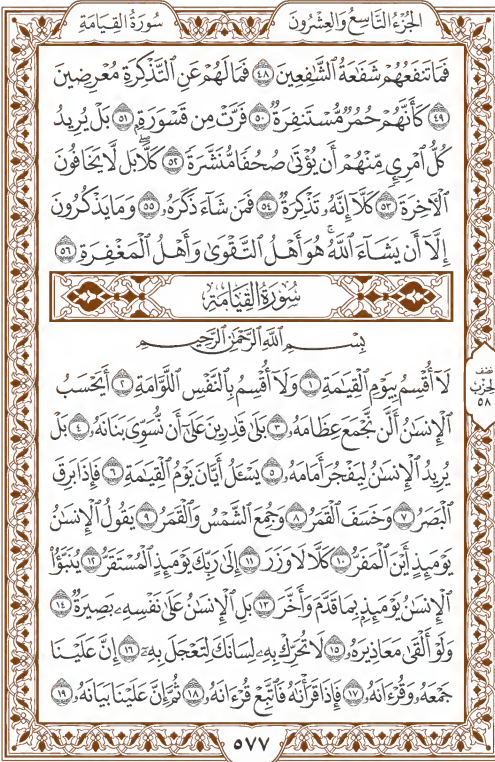 الجُزْءُ التَّاسِعُ وَالعِشْرُونَ سُورَةُ القِيَامَةِ
فَمَا تَنفَعُهُمْ شَفَٰعَةُ ٱلشَّٰفِعِينَ ٤٨ فَمَا لَهُمْ عَنِ ٱلتَّذْكِرَةِ مُعْرِضِينَ
٤٩ كَأَنَّهُمْ حُمُرٌ مُّسْتَنفِرَةٌ ٥٠ فَرَّتْ مِن قَسْوَرَةٍ ٥١ بَلْ يُرِيدُ
كُلُّ ٱمْرِئٍ مِّنْهُمْ أَن يُؤْتَىٰ صُحُفًا مُّنَشَّرَةً ٥٢ كَلَّا ۖ بَل لَّا يَخَافُونَ
ٱلْأَخِرَةَ ٥٣ كَلَّآ إِنَّهُۥ تَذْكِرَةٌ ٥٤ فَمَن شَآءَ ذَكَرَهُۥ ٥٥ وَمَا يَذْكُرُونَ
إِلَّآ أَن يَشَآءَ ٱللَّهُ ۚ هُوَ أَهْلُ ٱلتَّقْوَىٰ وَأَهْلُ ٱلْمَغْفِرَةِ ٥٦
سُورَةُ القِيَامَةِ
بِسْمِ ٱللَّهِ ٱلرَّحْمَٰنِ ٱلرَّحِيمِ
لَآ أُقْسِمُ بِيَوْمِ ٱلْقِيَٰمَةِ ١ وَلَآ أُقْسِمُ بِٱلنَّفْسِ ٱللَّوَّامَةِ ٢ أَيَحْسَبُ
ٱلْإِنسَٰنُ أَلَّن نَّجْمَعَ عِظَامَهُۥ ٣ بَلَىٰ قَٰدِرِينَ عَلَىٰٓ أَن نُّسَوِّىَ بَنَانَهُۥ ٤ بَلْ
يُرِيدُ ٱلْإِنسَٰنُ لِيَفْجُرَ أَمَامَهُۥ ٥ يَسْـَٔلُ أَيَّانَ يَوْمُ ٱلْقِيَٰمَةِ ٦ فَإِذَا بَرِقَ
ٱلْبَصَرُ ٧ وَخَسَفَ ٱلْقَمَرُ ٨ وَجُمِعَ ٱلشَّمْسُ وَٱلْقَمَرُ ٩ يَقُولُ ٱلْإِنسَٰنُ
يَوْمَئِذٍ أَيْنَ ٱلْمَفَرُّ ١٠ كَلَّا لَا وَزَرَ ١١ إِلَىٰ رَبِّكَ يَوْمَئِذٍ ٱلْمُسْتَقَرُّ ١٢ يُنَبَّؤُا۟
ٱلْإِنسَٰنُ يَوْمَئِذٍۭ بِمَا قَدَّمَ وَأَخَّرَ ١٣ بَلِ ٱلْإِنسَٰنُ عَلَىٰ نَفْسِهِۦ بَصِيرَةٌ ١٤
وَلَوْ أَلْقَىٰ مَعَاذِيرَهُۥ ١٥ لَا تُحَرِّكْ بِهِۦ لِسَانَكَ لِتَعْجَلَ بِهِۦٓ ١٦ إِنَّ عَلَيْنَا
جَمْعَهُۥ وَقُرْءَانَهُۥ ١٧ فَإِذَا قَرَأْنَٰهُ فَٱتَّبِعْ قُرْءَانَهُۥ ١٨ ثُمَّ إِنَّ عَلَيْنَا بَيَانَهُۥ ١٩
نصف
الحزب
٥٨
٥٧٧